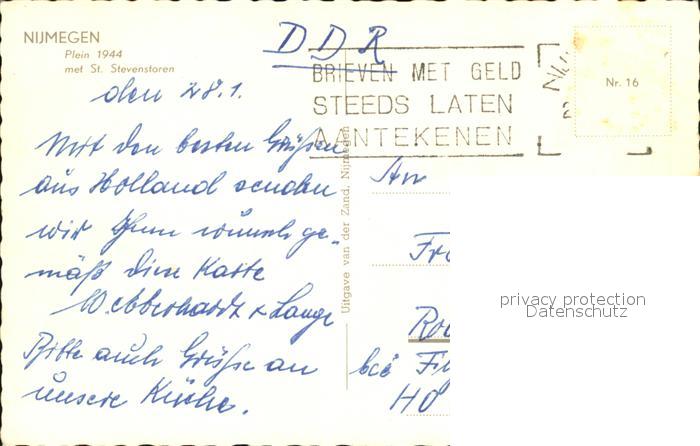 NIJMEGEN
Plein 1944
met St. Stevenstoren
DDR
BRIEVEN MET GELD
STEEDS LATEN
AANTEKENEN
Nr. 16
den 28.1.
Mit den besten Grüßen
aus Holland senden
wir Ihnen wunsch ge-
mäß diese Karte
W. Ebberhardt + Lange
Bitte auch Grüße an
unsere Küche.
Uitgave van der Zand, Nijmegen
An
bei
HO
privacy protection
Datenschutz